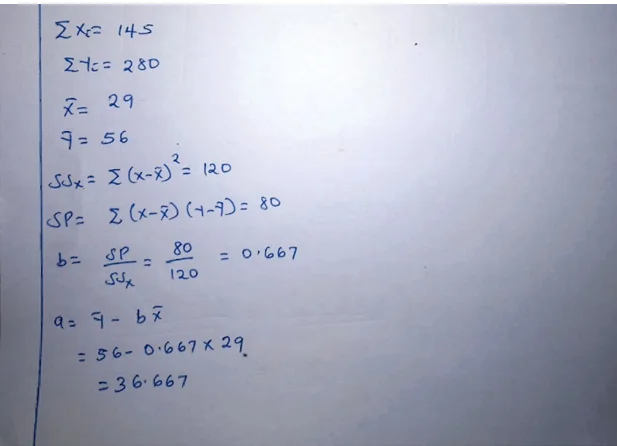 Σxi= 145
Σyi= 280
x̄= 29
ȳ= 56
SSx= Σ(x-x̄)²= 120
SP= Σ(x-x̄)(y-ȳ)= 80
b= SP/SSx = 80/120 = 0.667
a= ȳ- bx̄
= 56-0.667×29.
=36.667